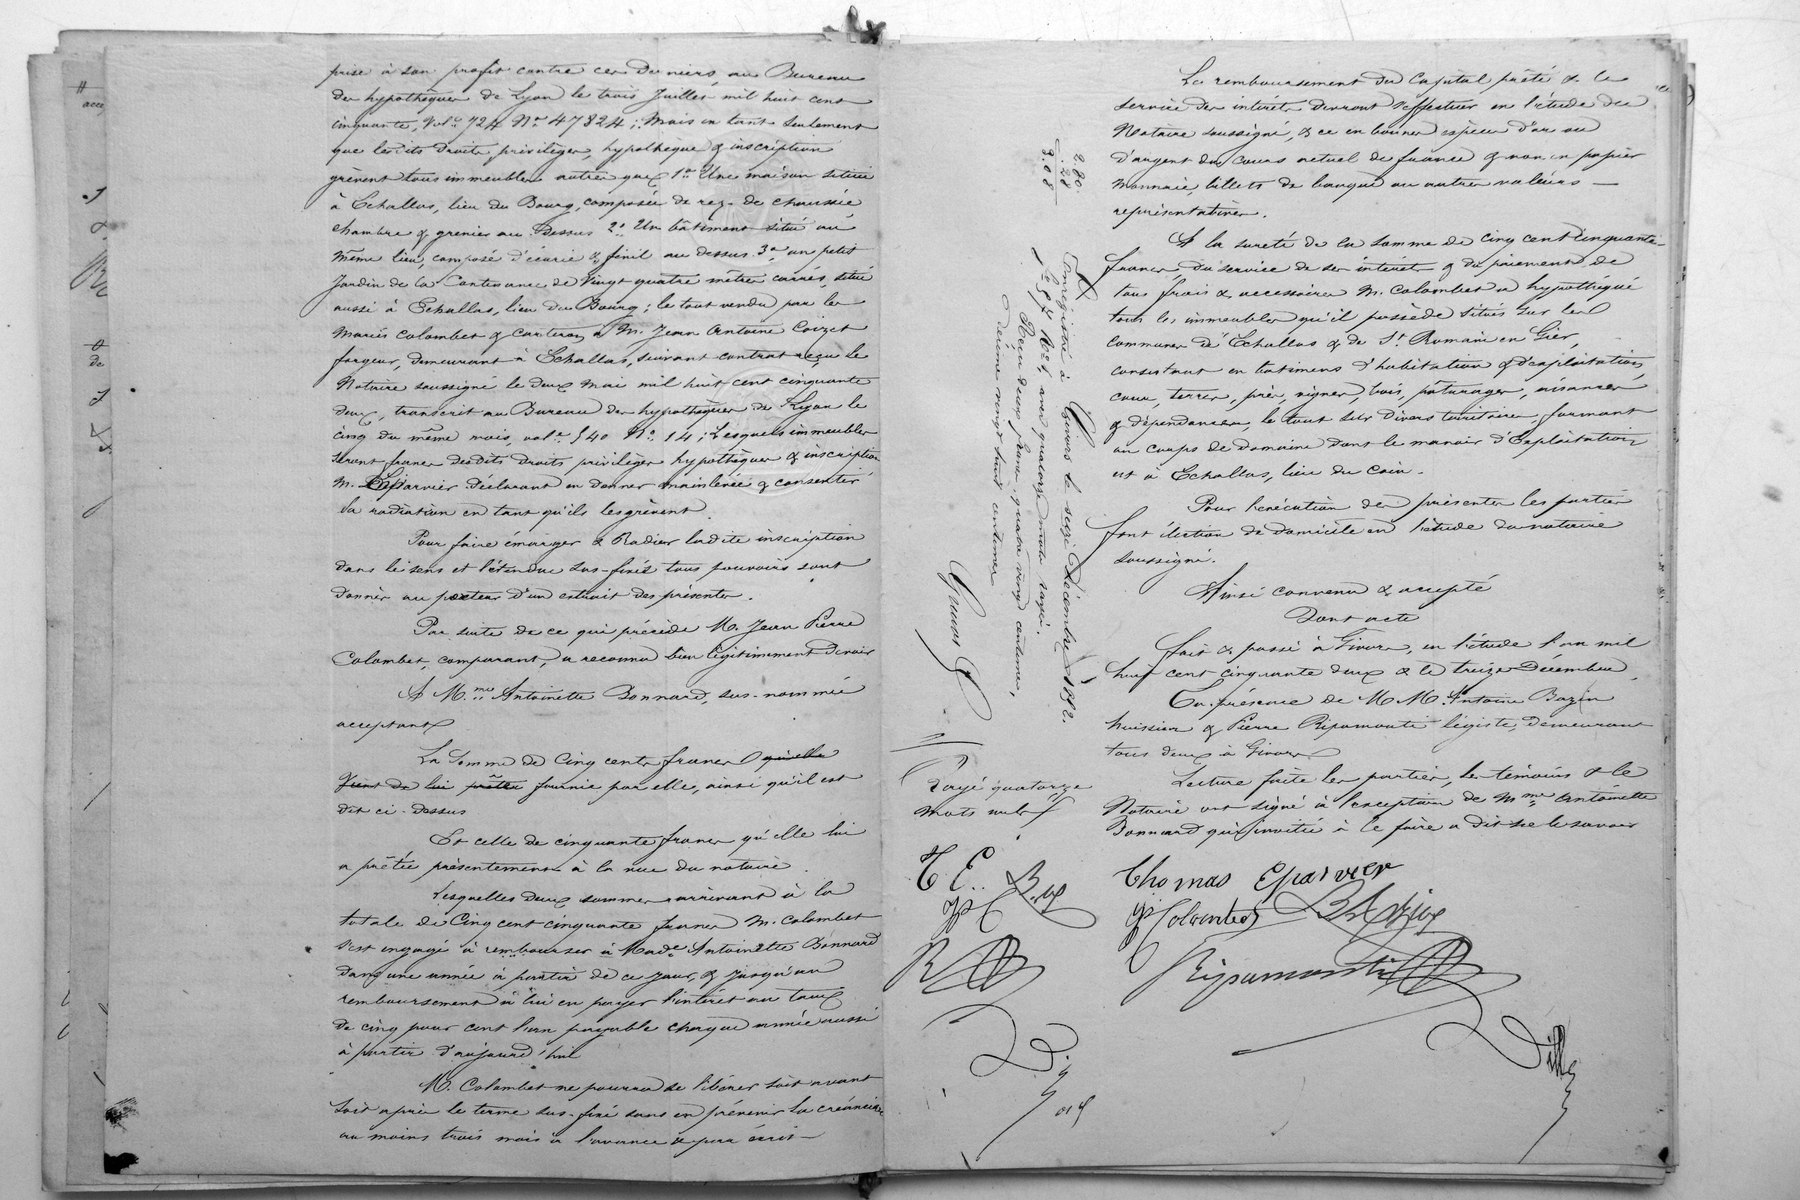 prise à son profit contre ces derniers, au Bureau
des hypothèques de Lyon le trois Juillet mil huit cent
cinquante, Vol.e 724 N.o 47824; Mais en tant seulement
que lesdits droits, privilèges, hypothèque & inscription
grèvent tous immeubles autres que 1.o Une maison située
à Echallas, lieu du Bourg, composée de rez-de chaussée
chambre & grenier au dessus 2.o Un bâtiment situé au
même lieu, composé d'écurie & fénil au dessus 3.o un petit
Jardin de la Contenance de Vingt quatre mètres carrés, situé
aussi à Echallas, lieu du Bourg; le tout vendu par les
mariés Colombet & à M. Jean Antoine Coizet
forgeur, demeurant à Echallas, suivant contrat reçu le
Notaire soussigné le deux Mai mil huit cent cinquante
deux, transcrit au Bureau des hypothèques de Lyon le
cinq du même mois, vol.e 540 N.o 14; Lesquels immeubles
seront francs desdits droits privilèges hypothèques & inscription
M. Eparvier déclarant en donner mainlevée & consentir
la radiation en tant qu'ils les grèvent
Pour faire émarger & Radier ladite inscription
dans le sens et l'étendue sus-fixés tous pouvoirs sont
donnés au porteur d'un extrait des présentes.
Par suite de ce qui précède M. Jean Pierre
Colombet, comparant, a reconnu bien légitimement devoir
A M.me Antoinette Bonnard, sus-nommée
acceptant
La Somme de Cinq cents francs qu'elle
vient de lui prêter fournie par elle, ainsi qu'il est
dit ci-dessus
Et celle de cinquante francs qu'elle lui
a prêtée présentement à la vue du notaire.
Lesquelles deux sommes arrivant à la
totale de Cinq cent cinquante francs M. Colombet
s'est engagé à rembourser à Mad.e Antoinette Bonnard
dans une année à partir de ce jour, & jusqu'au
remboursement à lui en payer l'intérêt au taux
de cinq pour cent l'an payable chaque année aussi
à partir d'aujourd'hui
M. Colombet ne pourra se libérer soit avant
soit après le terme sus-fixé sans en prévenir la créancière
au moins trois mois à l'avance & par écrit
Le remboursement du Capital prêté & le
service des intérêts devront s'effectuer en l'étude du
Notaire soussigné, & ce en bonnes espèces d'or ou
d'argent du cours actuel de france & non en papier
monnaie, billets de banque ou autres valeurs
représentatives.
A la sureté de la somme de cinq cent cinquante
francs, du service de ses intérêts & du paiement de
tous frais & accessoires M. Colombet a hypothéqué
tous les immeubles qu'il possède situés sur les
communes d'Echallas & de St Romain en Gier,
consistant en bâtimens d'habitation & d'exploitation,
cour, terres, près, vignes, bois, pâturages, aisances
& dépendances, le tout sur divers territoires, formant
un corps de domaine dont le manoir d'Exploitation
est à Echallas, lieu du Coin.
Pour l'exécution des présentes les parties
font élection de domicile en l'étude du notaire
soussigné.
Ainsi convenu & accepté
Dont acte
fait & passé à Givors, en l'étude l'an mil
huit cent cinquante deux & le treize Décembre,
En présence de M.M. Antoine Bazin
huissier & Pierre Ripamonti légiste, demeurant
tous deux à Givors
Lecture faite les parties, les témoins & le
Notaire ont signé à l'exception de M.me Antoinette
Bonnard qui invitée à le faire a dit ne le savoir
2.80
.28
3.08
Enregistré à Givors le seize Décembre 1852.
avec quatorze mots rayés.
Reçu deux francs quatre vingt centimes,
décime vingt huit centimes
Rayé quatorze
mots nuls
T. E.
JPC
R
Thomas Eparvier
JPColombet
Bazin
Ripamonti